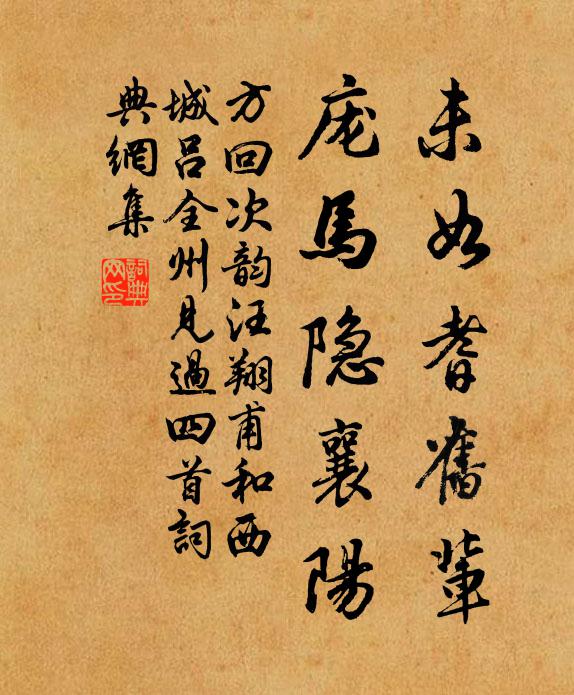 未如耆舊輩
庞馬隐襄陽
方回次韵汪翔甫和西
城吕全州見過四首詞
典網集
詞典網印